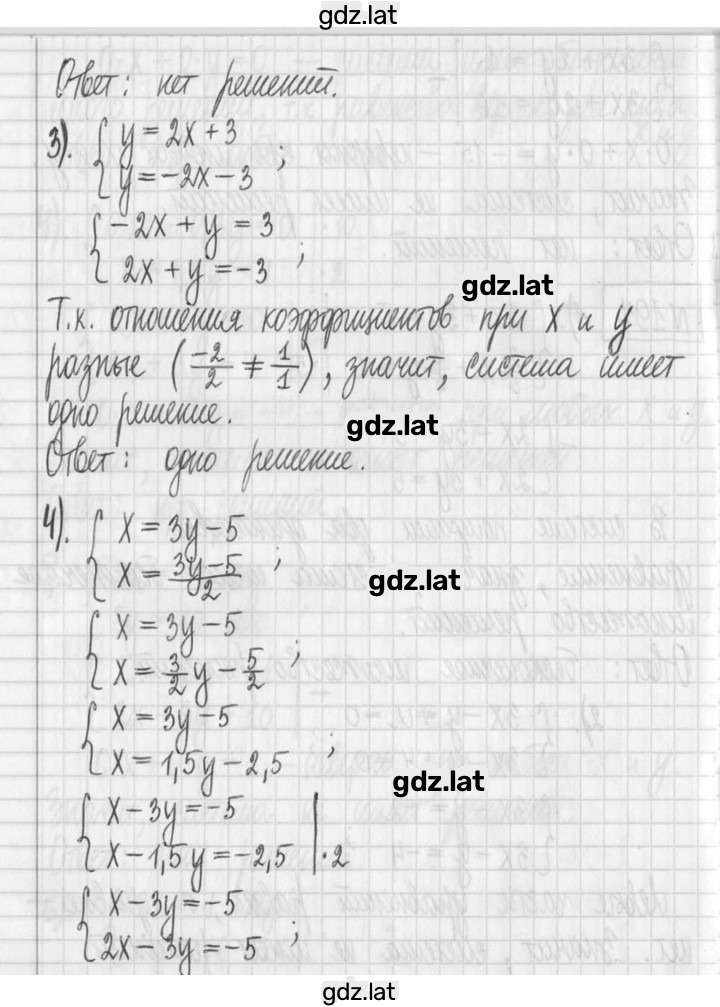 gdz.lat
Ответ: нет решений.
3). { y = 2x + 3
y = -2x - 3 ;
{ -2x + y = 3
2x + y = -3 ;
gdz.lat
Т.к. отношения коэффициентов при x и y
разные (-2/2 ≠ 1/1), значит, система имеет
одно решение.
gdz.lat
Ответ: одно решение.
4). { x = 3y - 5
x = (3y - 5)/2 ;
gdz.lat
{ x = 3y - 5
x = 3/2 y - 5/2 ;
{ x = 3y - 5
x = 1,5y - 2,5 ;
gdz.lat
{ x - 3y = -5
x - 1,5y = -2,5 | ·2
{ x - 3y = -5
2x - 3y = -5 ;
gdz.lat